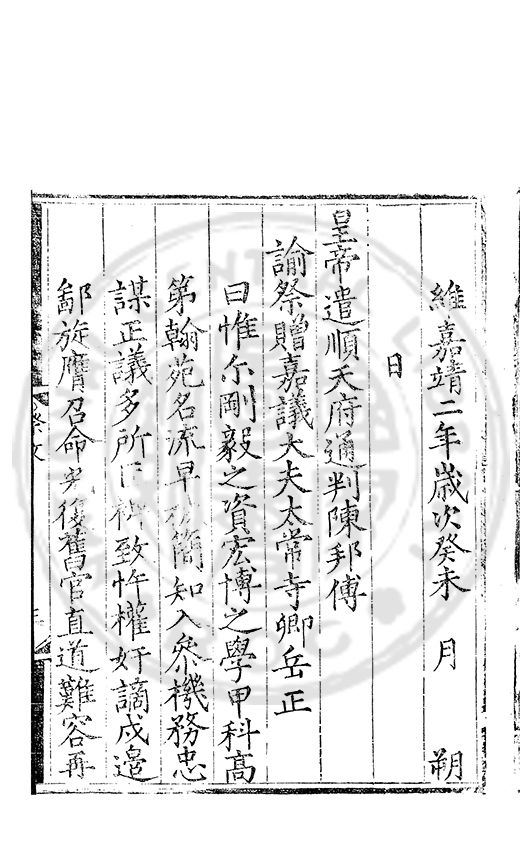 維嘉靖二年歲次癸未 月 朔
日
皇帝遣順天府通判陳邦傅
諭祭贈嘉議大夫太常寺卿岳正
曰惟尓剛毅之資宏博之學甲科高
第翰苑名流早 簡知入參機務忠
謀正議多所 致忤權奸謫戍邉
鄙旋膺召命 復舊官直道難容再
祭文